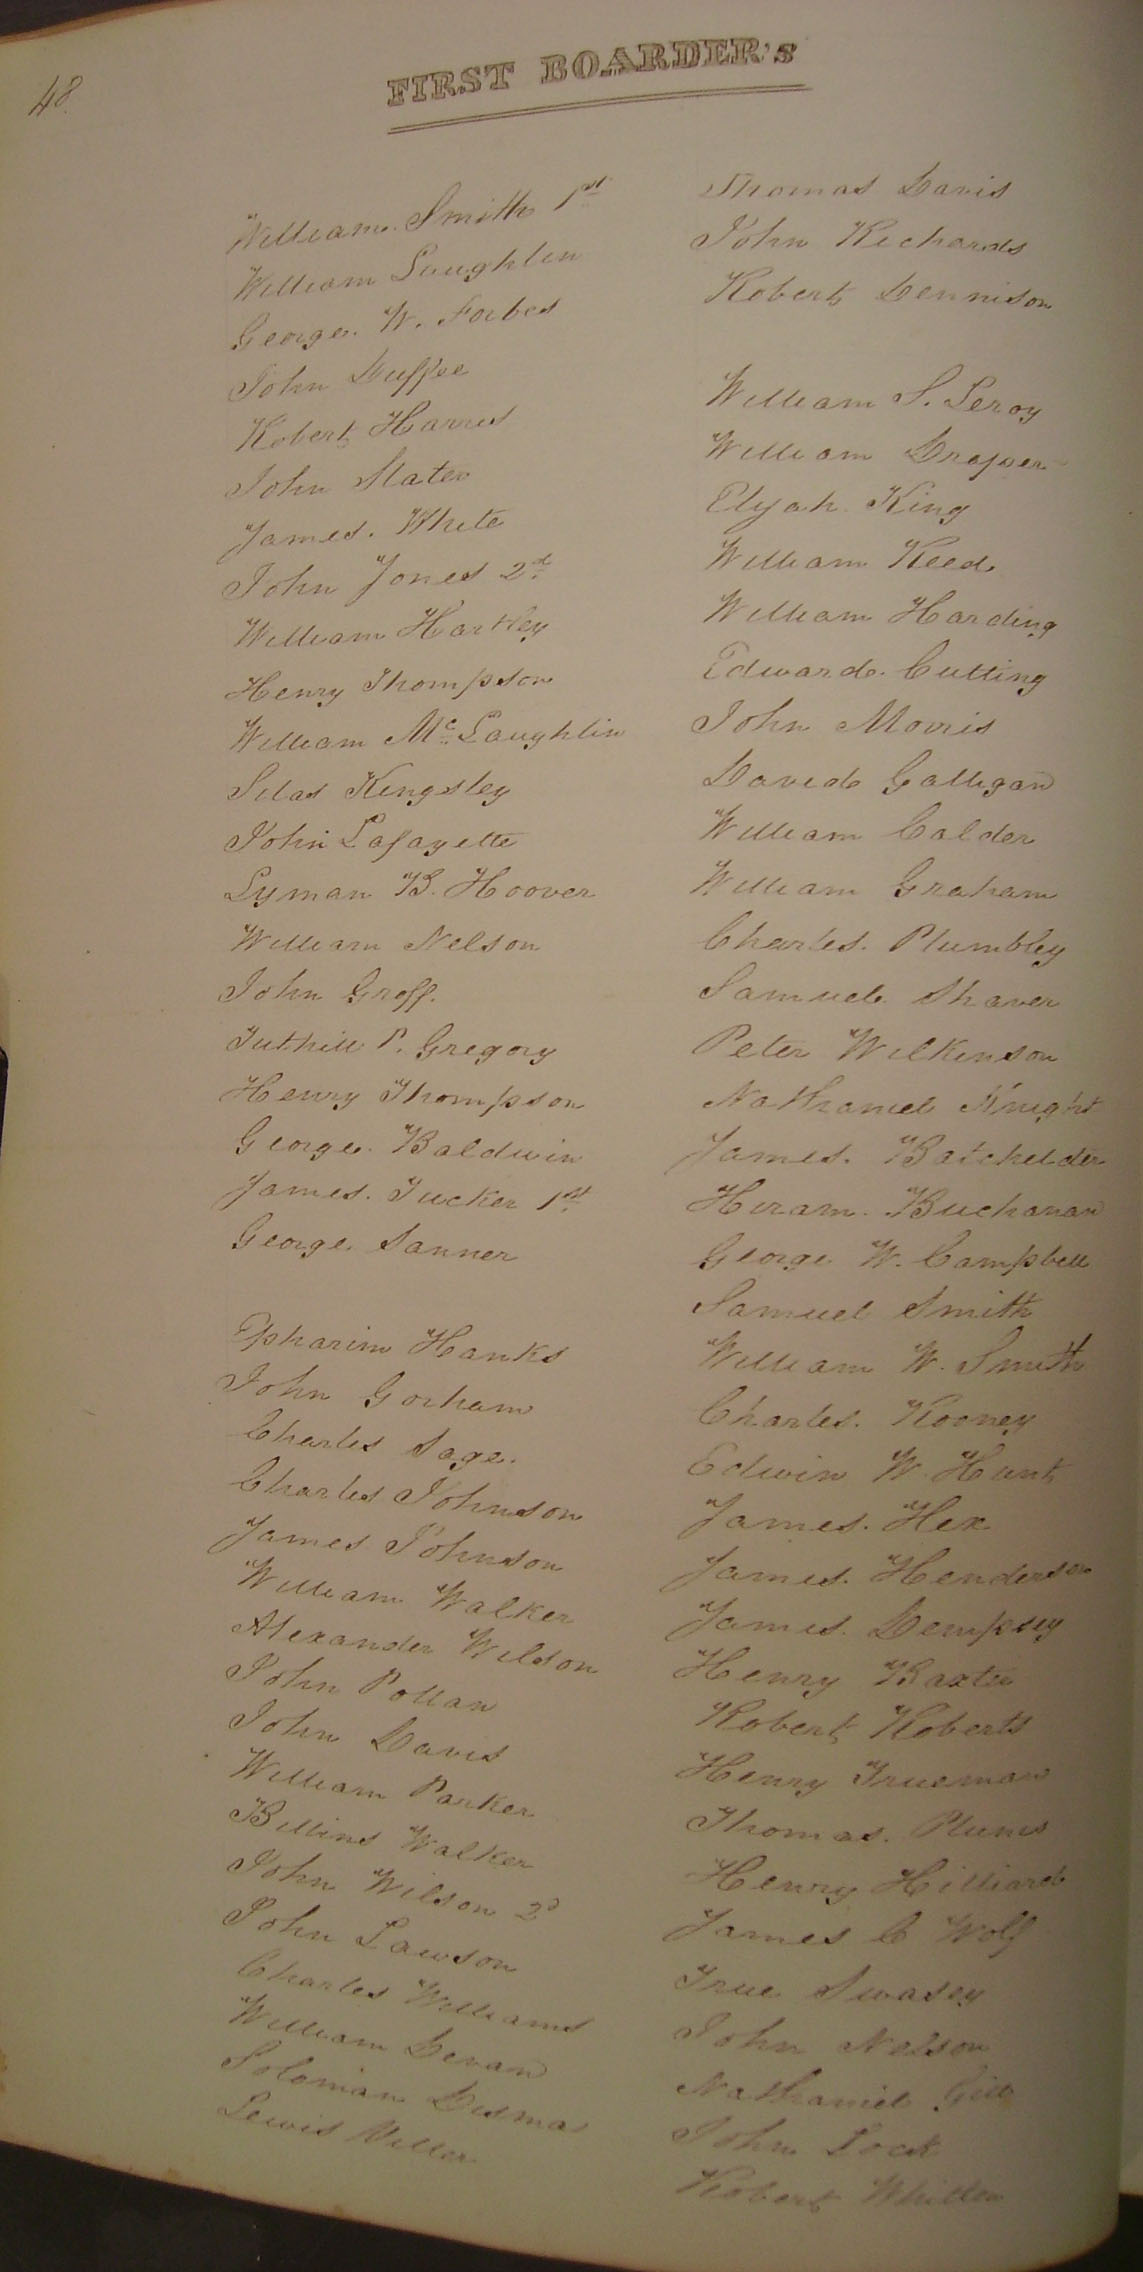 48
FIRST BOARDER's
William Smith 1st
William Loughlin
George W. Forbes
John Duffee
Robert Harris
John Slater
James White
John Jones 2d
William Hartley
Henry Thompson
William Mc Laughlin
Silas Kingsley
John Lafayette
Lyman B. Hoover
William Nelson
John Groff
Tuthill P. Gregory
Henry Thompson
George Baldwin
James Tucker 1st
George Sanner
Epharim Hanks
John Gorham
Charles Sage
Charles Johnson
James Johnson
William Walker
Alexander Wilson
John Pollan
John Davis
William Parker
Billins Walker
John Wilson 2d
John Lawson
Charles Williams
William Devan
Soloman Disma
Lewis Miller
Thomas Davis
John Richards
Robert Dennison
William S. Leroy
William Draper
Elyah King
William Reed
William Harding
Edward Cutting
John Morris
David Galligan
William Calder
William Graham
Charles Plumbley
Samuel Shaver
Peter Wilkinson
Nathaniel Knight
James Batchelder
Hiram Buchanan
George W. Campbell
Samuel Smith
William W. Smith
Charles Rooney
Edwin W. Hunt
James Hex
James Henderson
James Dempsey
Henry Baxter
Robert Roberts
Henry Trueman
Thomas Plums
Henry Hilliard
James C Wolf
True Swasey
John Nelson
Nathaniel Gill
John Lock
Robert Whitten